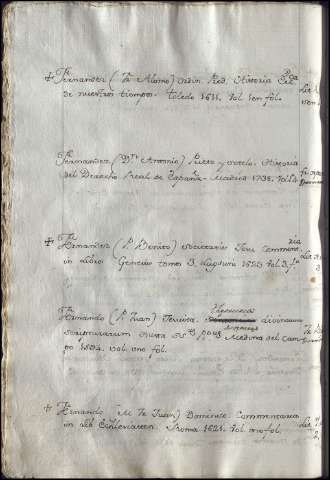 + Fernandez (Fr. Alonso) Ordin. Pred. Historia
de nuestros tiempos. Toledo 1611. Vol. 1 en fol.
Fernandez (Dn. Antonio) Prieto y Sotelo. Historia
del Derecho Real de España. Madrid 1738. Vol.
+ Fernandez (P. Benito) Societatis Jesu Comment.
in Libro Genesis tomos 3. Lugduni 1625 vol. 3. fo
Fernando (P. Juan) Jesuita. Thesaurus divinarum
scripturarum Medina del Cam-
po 1594. vol. uno fol.
+ Fernando (M. Fr. Juan) Dominic. Commentaria
in lib. Ecclesiasten. Roma 1621. Vol. uno fol.